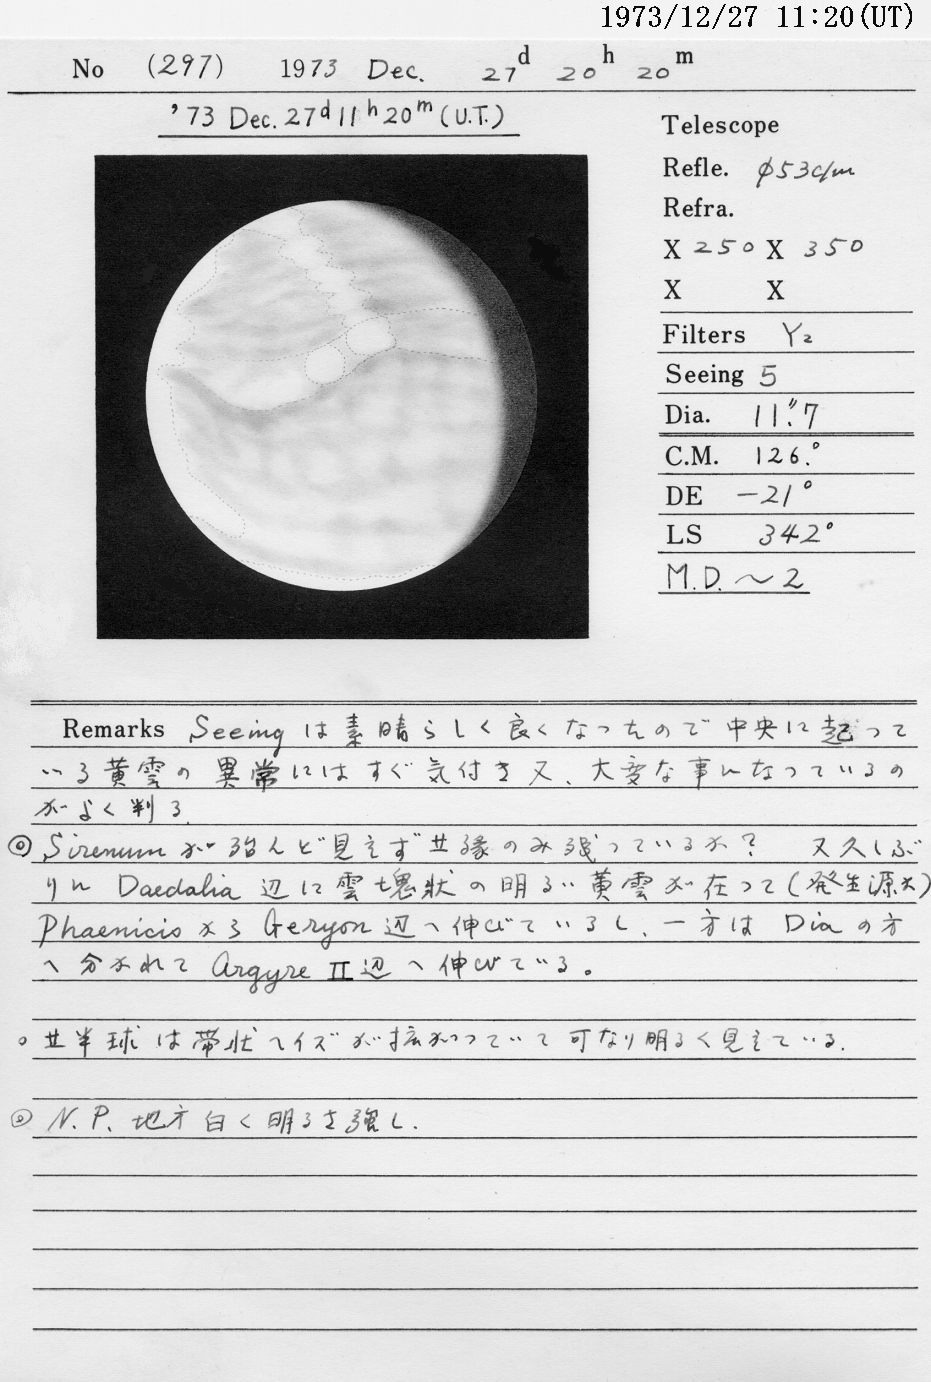 1973/12/27 11:20(UT)
No (297) 1973 Dec. 27d 20h 20m
'73 Dec. 27d 11h 20m (U.T.)
Telescope
Refle. φ53c/m
Refra.
X 250 X 350
X X
Filters Y2
Seeing 5
Dia. 11."7
C.M. 126.°
DE -21°
LS 342°
M.D. ~2
Remarks Seeing は素晴らしく良くなったので中央に起って
いる黄雲の異常にはすぐ気付き又、大変な事になっているの
がよく判る
◎ Sirenum が殆んど見えず北縁のみ残っているか? 又久しぶ
りに Daedalia 辺に雲塊状の明るい黄雲が在って(発生源か)
Phaenicis から Geryon 辺へ伸びているし、一方は Dia の方
へ分かれて Argyre II 辺へ伸びている。
○ 北半球は帯状ヘイズが拡がっていて可なり明るく見えている.
◎ N.P. 地方白く明るさ強し.